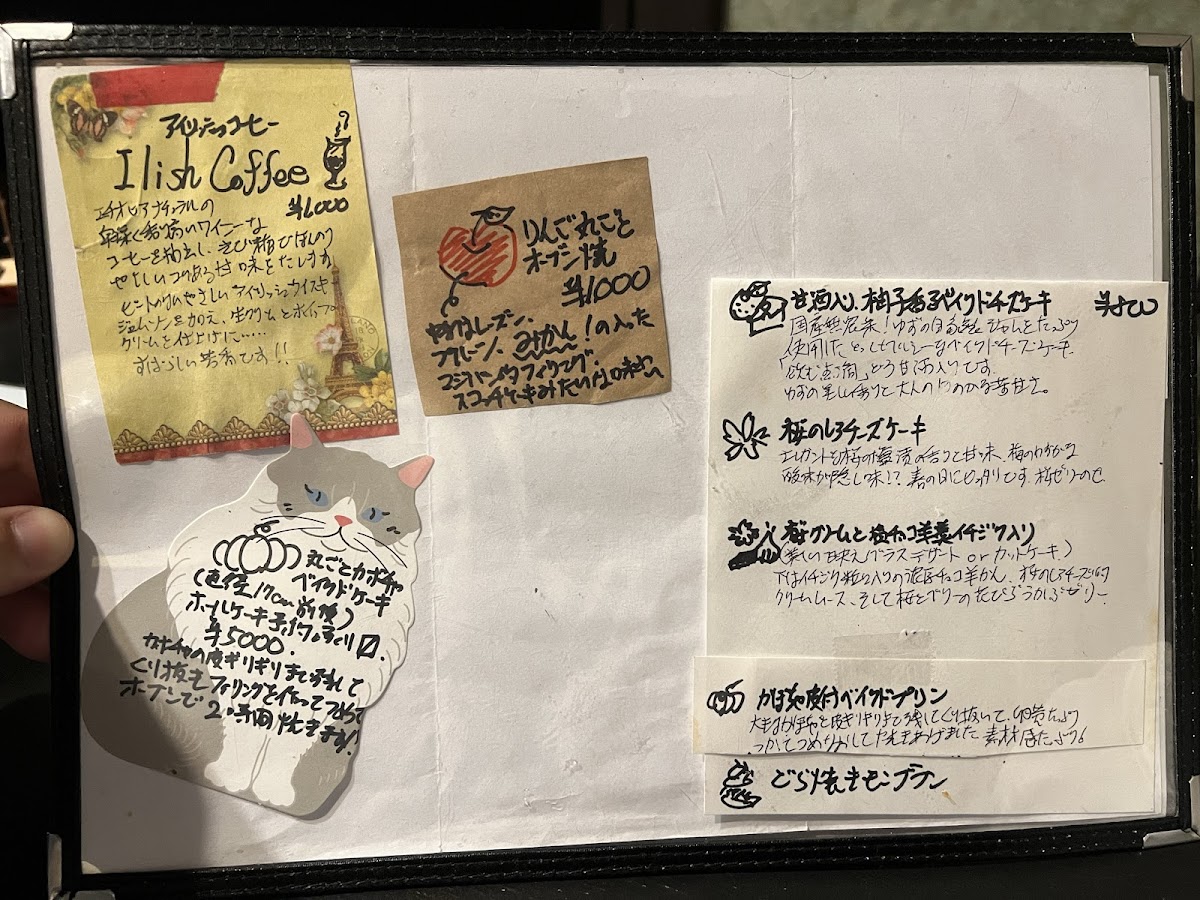 アイリッシュコーヒー
Ilish Coffee
¥1,000
エチオピアナチュラルの
香り高いワイニーな
コーヒーを抽出し、きび糖でほんのり
やさしいコクのある甘味をたします。
アイリッシュウイスキー
ジェムソンを加え、生クリームとホイップ
クリームを仕上げに……
すばらしい芳香です!!
りんご丸ごと
オーブン焼
¥1000
レーズン、
プルーン、みかん!の入った
マジパンのフィリング
スコッチケーキみたいな味わい
丸ごとカボチャ
ベイクドケーキ
(直径17cm前後)
ホールケーキ予約
¥5000.
カボチャの皮ギリギリまで残して
くり抜き フィリングを作ってつめて
オーブンで2時間焼きます!
甘酒入り、柚子香るベイクドチーズケーキ ¥800
国産無農薬!ゆずの自家製ジャムをたっぷり
使用した ベイクドチーズケーキ
「飲む点滴」という甘酒入りです。
ゆずの 香りと大人の わかる 甘さ。
桜のレアチーズケーキ
エレガントな桜の 香りと甘味、梅のわずかな
酸味が隠し味!? 春の日にピッタリです。桜ゼリーのせ
桜クリームと 桜チョコ羊羹イチジク入り
(美しい 映え グラスデザート or カットケーキ)
下はイチジク 入りの濃厚チョコ羊かん、桜のレアチーズ
クリームムース、そして桜とベリーの ゼリー
かぼちゃ皮付ベイクドプリン
大きなかぼちゃを皮ギリギリまで残してくり抜いて、卵 たっぷり
つかってつめなおして焼きあげました 素材感たっぷり
どら焼きモンブラン